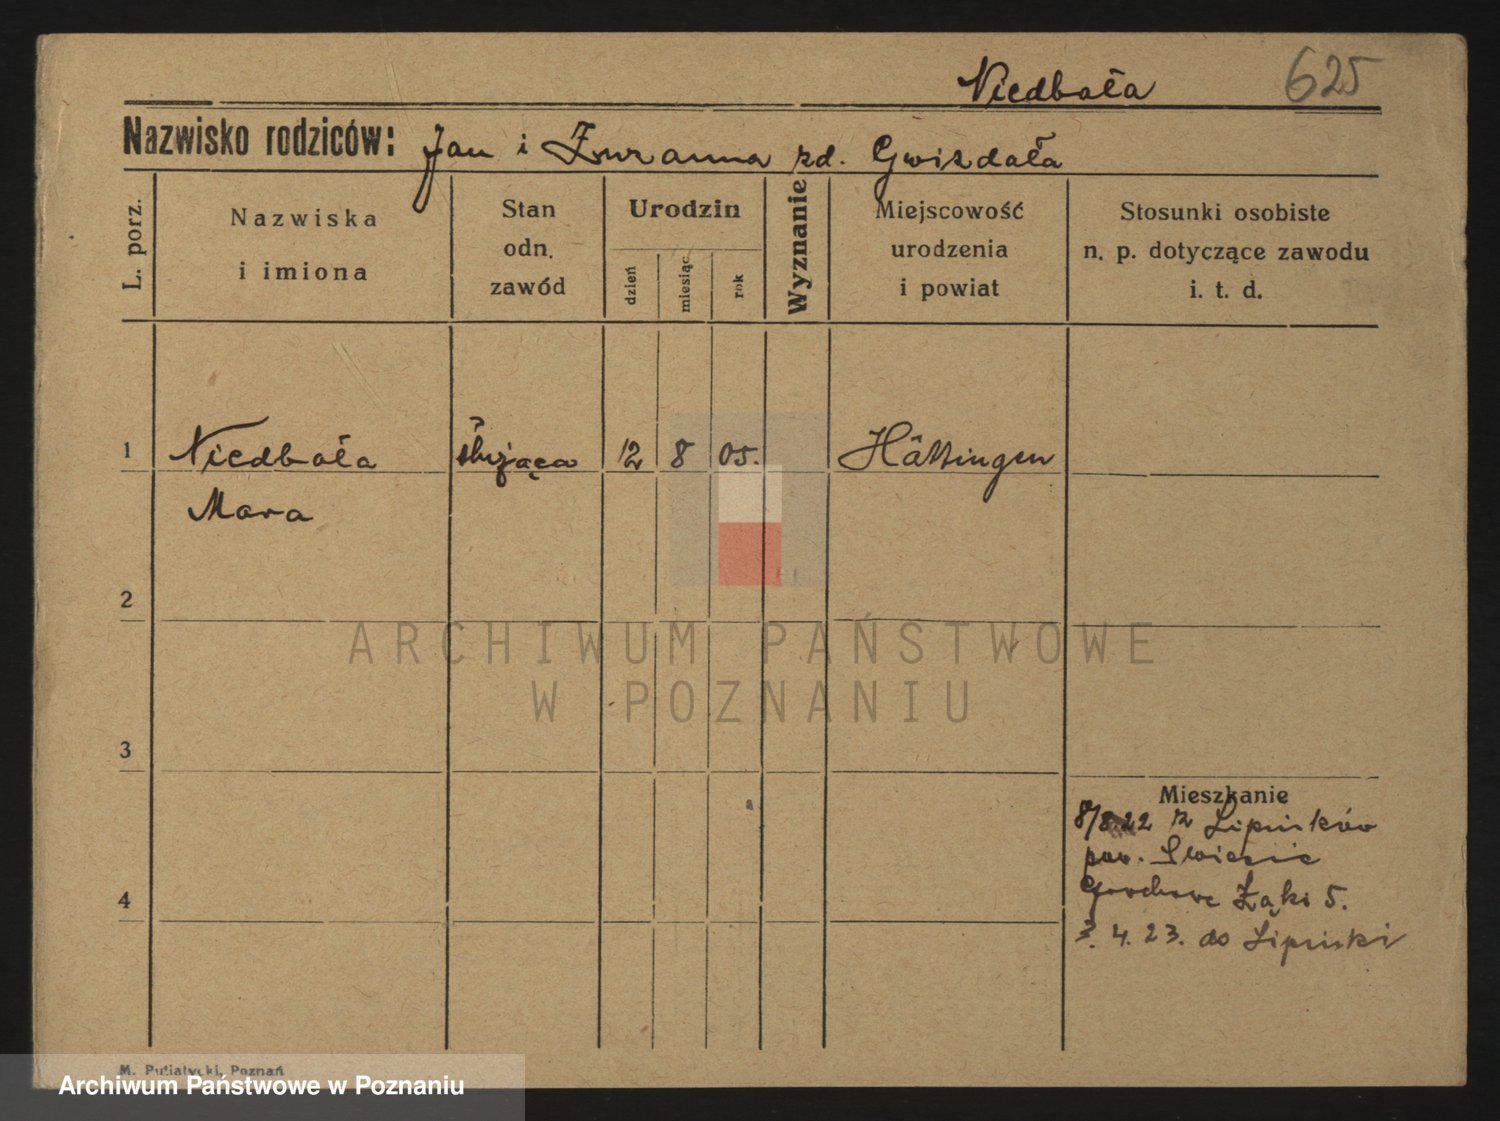 Niedbała 625
Nazwisko rodziców: Jan i Zuzanna zd. Gwizdała
L. porz.
Nazwiska
i imiona
Stan
odn.
zawód
Urodzin
dzień
miesiąc
rok
Wyznanie
Miejscowość
urodzenia
i powiat
Stosunki osobiste
n. p. dotyczące zawodu
i. t. d.
1 Niedbała służąca 12 8 05. Hättingen
Mara
2
ARCHIWUM PAŃSTWOWE
W POZNANIU
3
Mieszkanie
8/8 22 z Lipinków
pow. Swiecie
4
Łąki 5.
3. 4. 23. do Lipinki
M. Putiatycki, Poznań
Archiwum Państwowe w Poznaniu